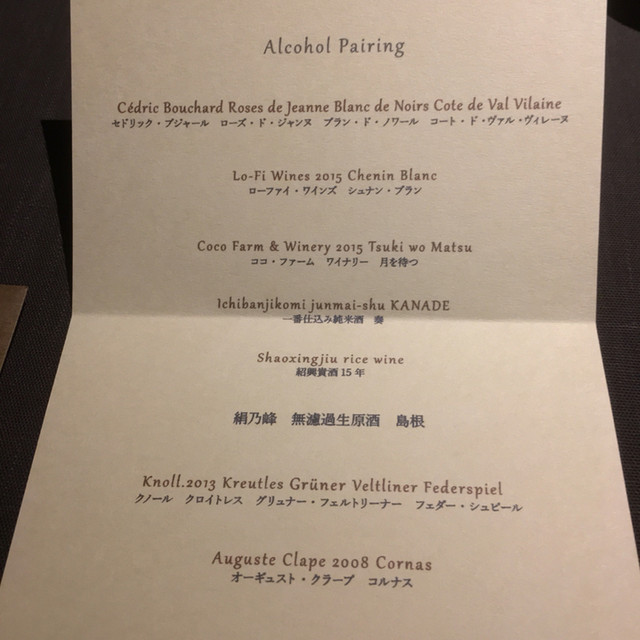 Alcohol Pairing
Cédric Bouchard Roses de Jeanne Blanc de Noirs Cote de Val Vilaine
セドリック・ブジャール　ローズ・ド・ジャンヌ　ブラン・ド・ノワール　コート・ド・ヴァル・ヴィレーヌ
Lo-Fi Wines 2015 Chenin Blanc
ローファイ・ワインズ　シュナン・ブラン
Coco Farm & Winery 2015 Tsuki wo Matsu
ココ・ファーム　ワイナリー　月を待つ
Ichibanjikomi junmai-shu KANADE
一番仕込み純米酒　奏
Shaoxingjiu rice wine
紹興貴酒 15 年
絹乃峰　無濾過生原酒　島根
Knoll.2013 Kreutles Grüner Veltliner Federspiel
クノール　クロイトレス　グリュナー・フェルトリーナー　フェダー・シュピール
Auguste Clape 2008 Cornas
オーギュスト・クラープ　コルナス